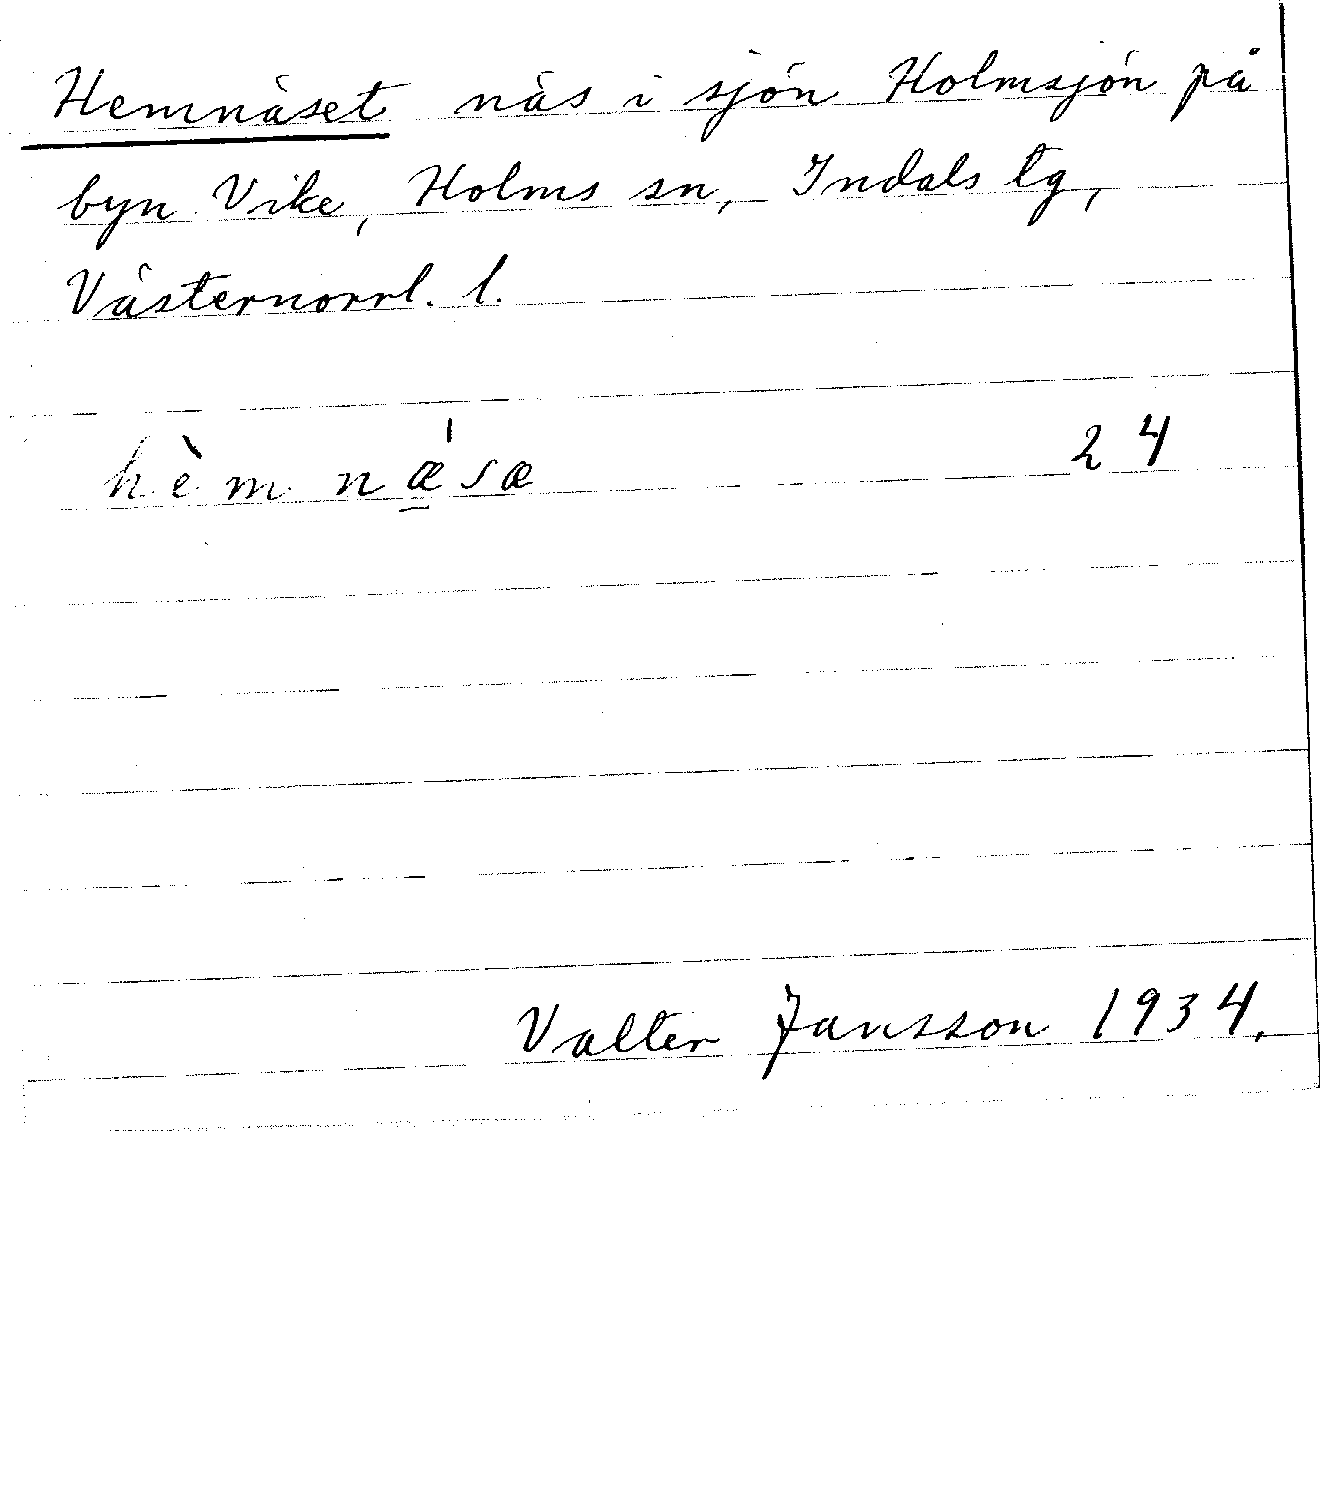 Hemnäset näs i sjön Holmsjön på
byn Vike, Holms sn, Indals tg,
Västernorrl. l.
hèm nǽ̱sæ 24
Valter Jansson 1934.